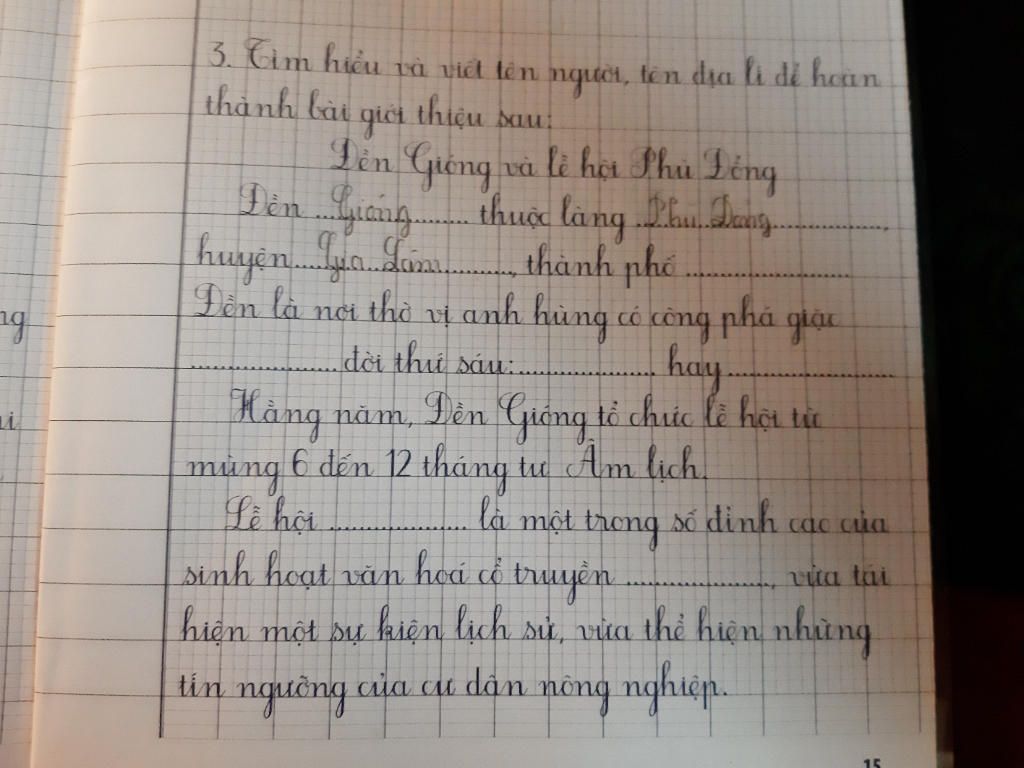 3. Tìm hiểu và viết tên người, tên địa lí để hoàn
thành bài giới thiệu sau:
Đền Gióng và lễ hội Phù Đổng
Đền ...Gióng........ thuộc làng ..Phù..Đổng................,
huyện....Gia..Lâm..........., thành phố .......................
Đền là nơi thờ vị anh hùng có công phá giặc
..................... đời thứ sáu:.................... hay........................
Hằng năm, Đền Gióng tổ chức lễ hội từ
mùng 6 đến 12 tháng tư Âm lịch.
Lễ hội .................... là một trong số đỉnh cao của
sinh hoạt văn hoá cổ truyền ....................., vừa tái
hiện một sự kiện lịch sử, vừa thể hiện những
tín ngưỡng của cư dân nông nghiệp.
15
ng